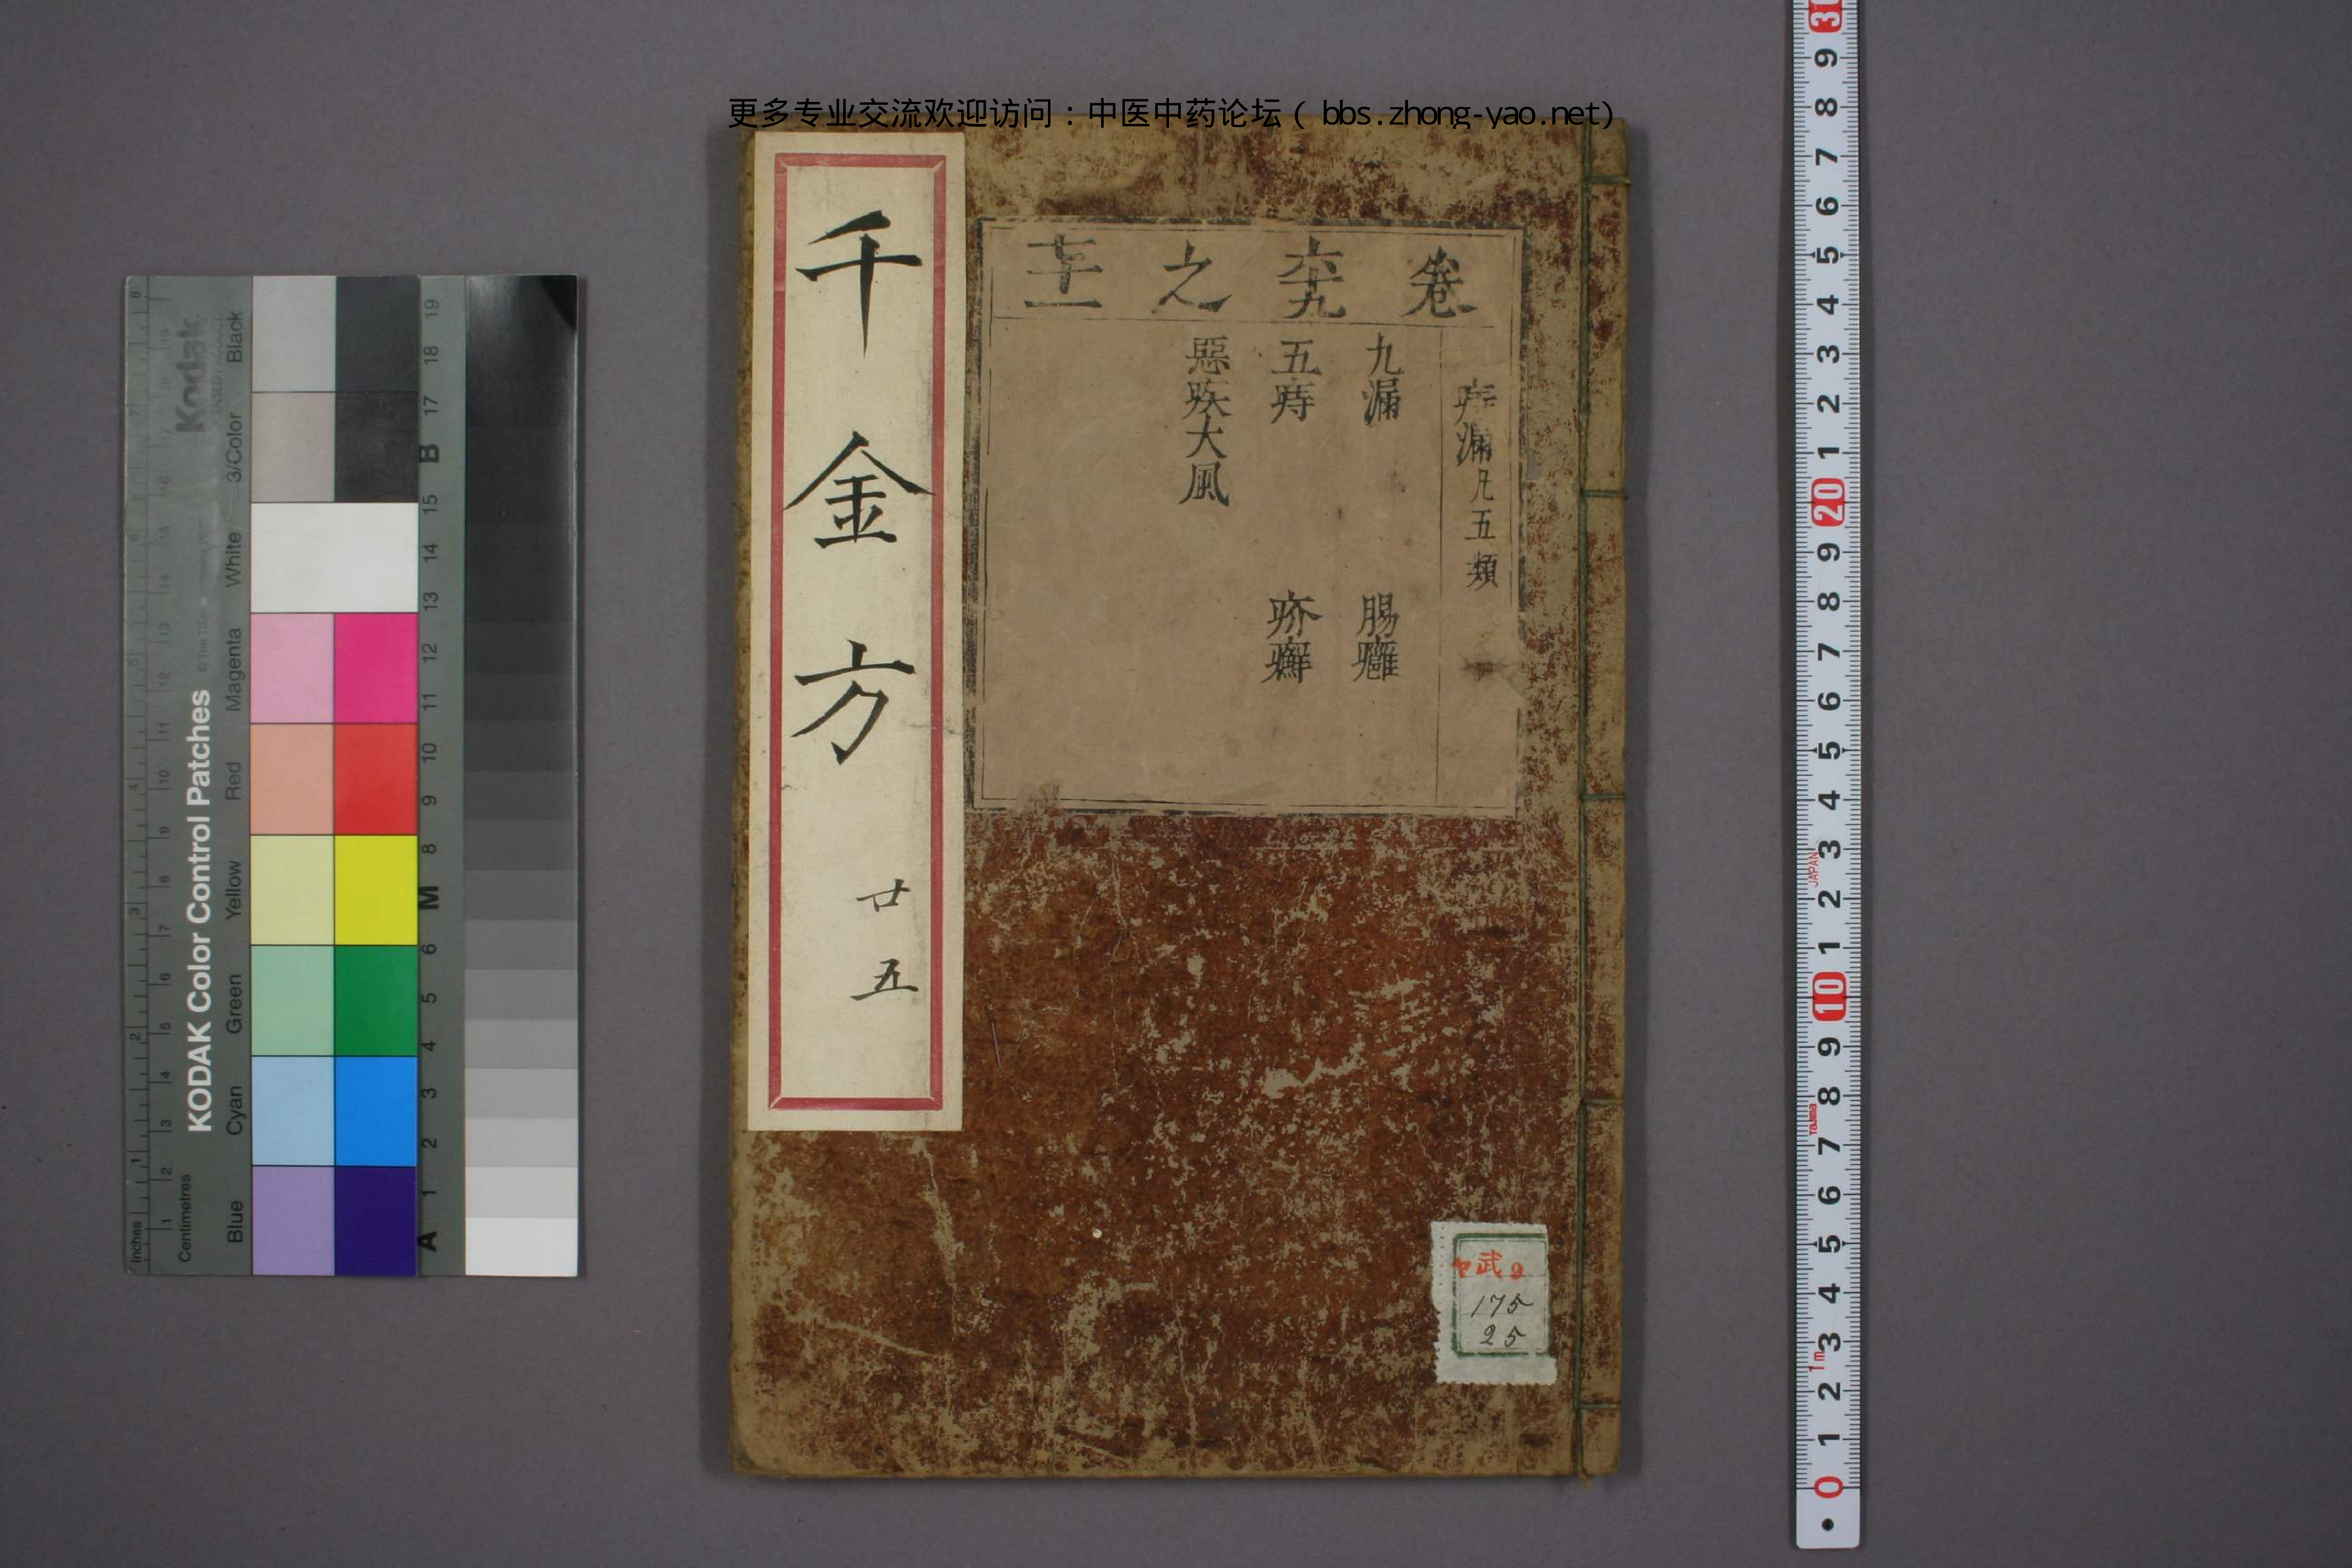 更多专业交流欢迎访问：中医中药论坛（bbs.zhong-yao.net）
千金方
廿五
卷六十九之七十一
痔漏凡五類
九漏 腸癰
五痔 疥癬
惡疾大風
武
175
25
KODAK Color Control Patches
Kodak
Inches
Centimetres
Blue
Cyan
Green
Yellow
Red
Magenta
White
3/Color
Black
1 2 3 4 5 6 7 8
1 2 3 4 5 6 7 8 9 10 11 12 13 14 15 16 17 18 19
A 1 2 3 4 5 6 M 8 9 10 11 12 13 14 15 B 17 18 19
0 1 2 3 4 5 6 7 8 9 10 1 2 3 4 5 6 7 8 9 20 1 2 3 4 5 6 7 8 9
1m
Tajima
JAPAN